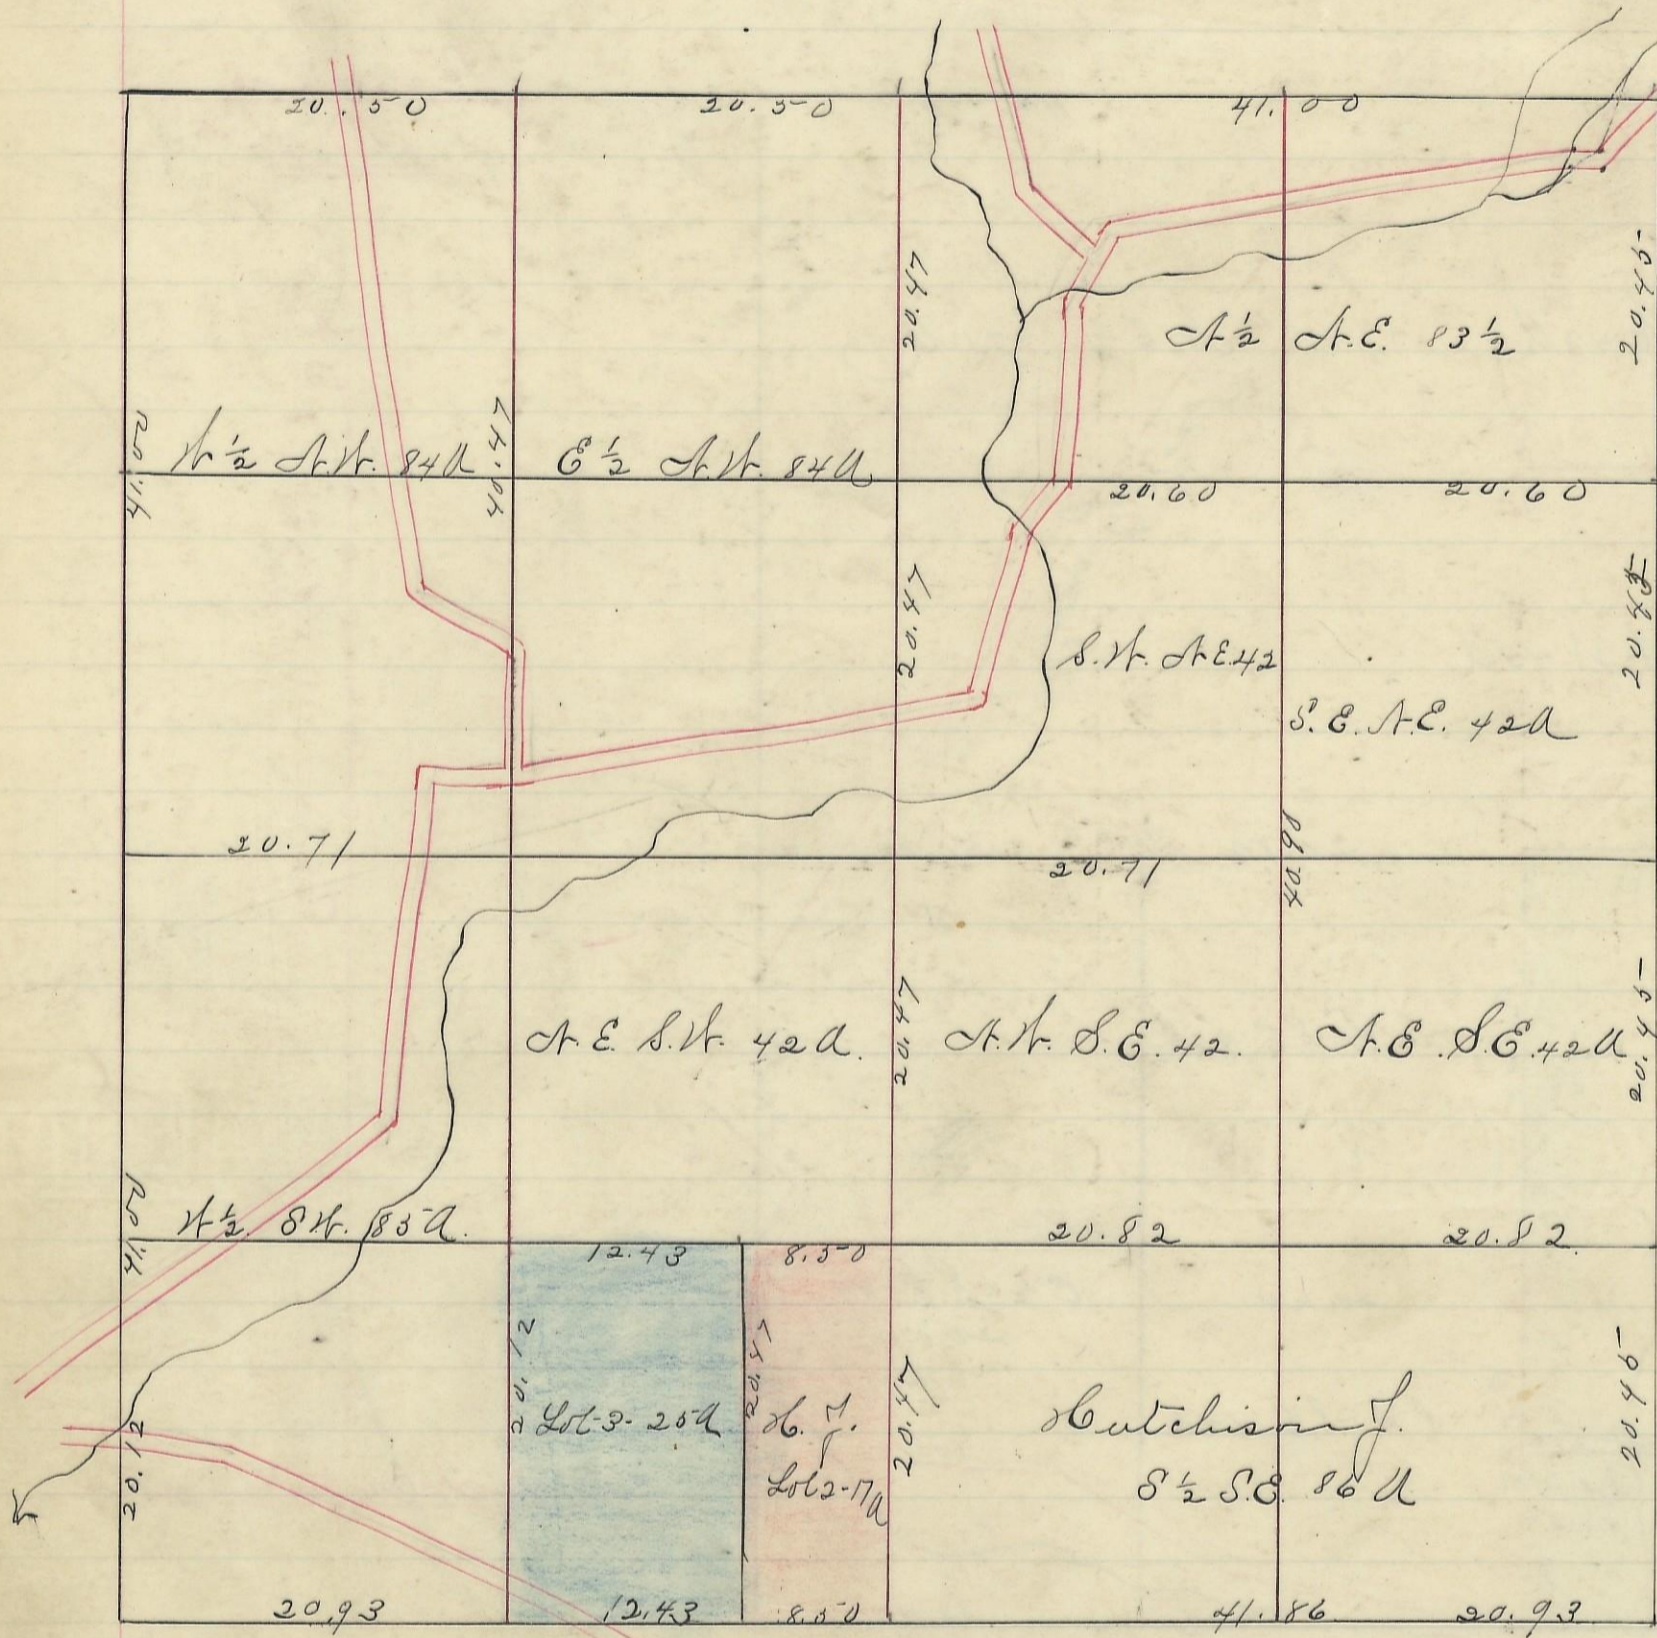 20.50
20.50
41.00
20.47
20.45
N ½ N.E. 83 ½
W ½ N.W. 84 A
40.47
E ½ N.W. 84 A
20.60
20.60
20.47
S.W. N.E. 42
S.E. N.E. 42 A
20.71
20.71
40.90
N.E. S.W. 42 A.
20.47
N.W. S.E. 42.
N.E. S.E. 42 A
20.45
W ½ S.W. 85 A.
12.43
8.50
20.82
20.82.
20.12
20.12
Lot-3-25 A
20.47
H. J.
Lot 2-17 A
20.47
Hutchison J.
S ½ S.E. 86 A
20.45
20.93
12.43
8.50
41.86
20.93